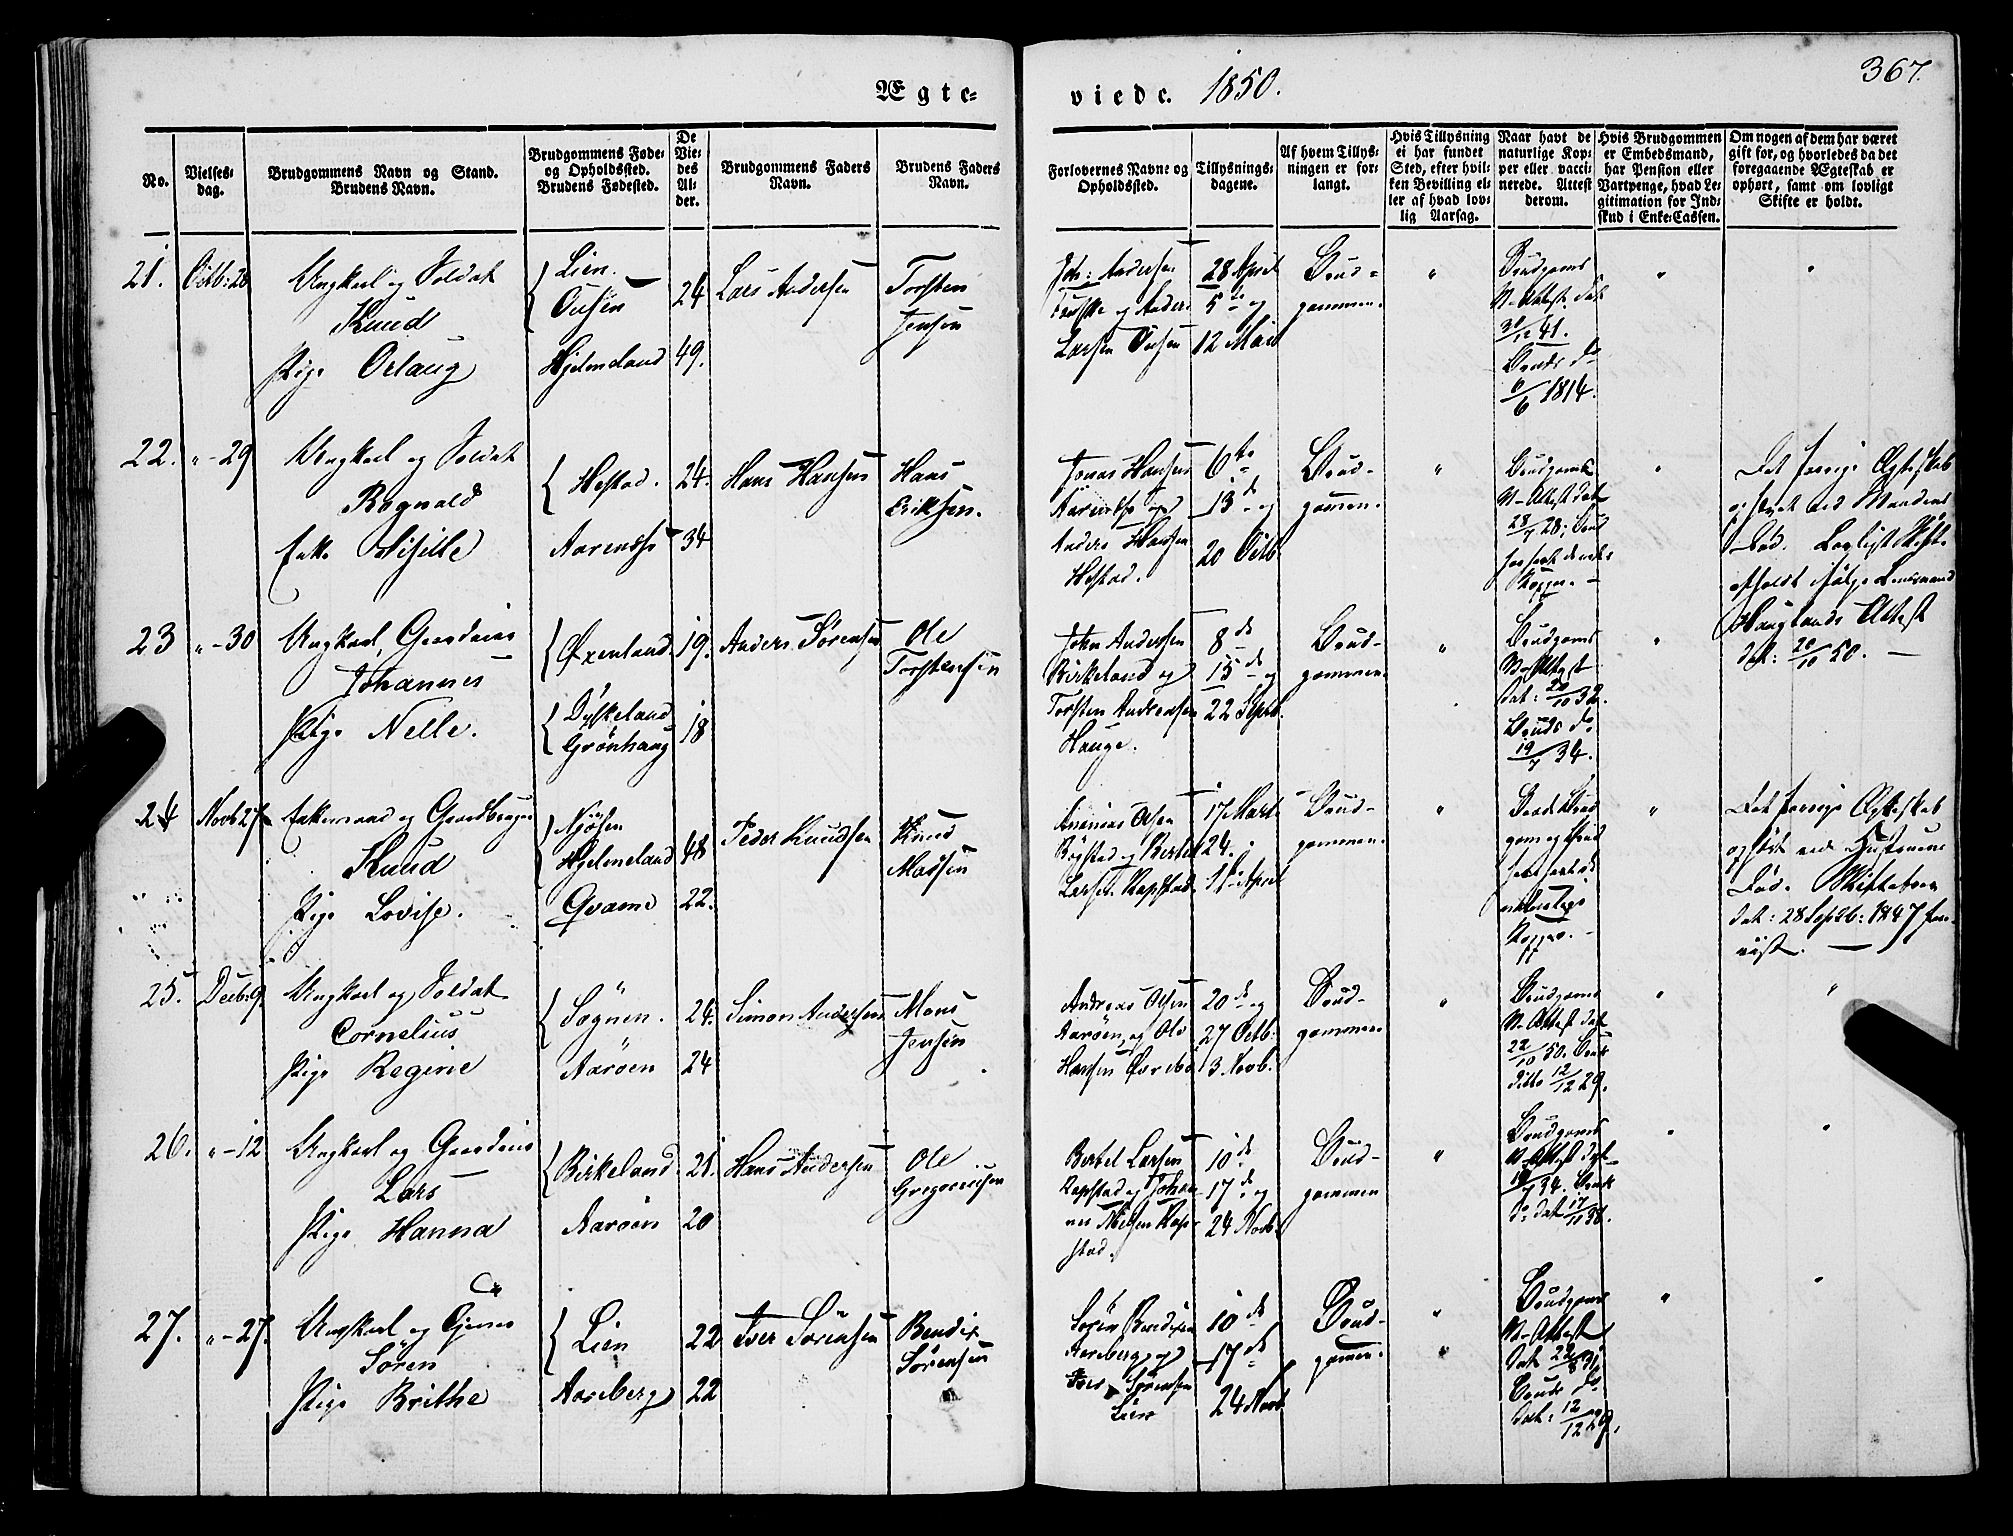 Ægte-
viede. 1850.
367.
No.
Vielses-
dag.
Brudgommens Navn og Stand.
Brudens Navn.
Brudgommens Føde-
og Opholdssted.
Brudens Fødested.
De
Vie-
des
Al-
der.
Brudgommens Faders
Navn.
Brudens Faders
Navn.
Forlovernes Navne og
Opholdssted.
Tillysnings-
dagene.
Af hvem Tillys-
ningen er for-
langt.
Hvis Tillysning
ei har fundet
Sted, efter hvil-
ken Bevilling el-
ler af hvad lov-
lig Aarsag.
Naar havt de
naturlige Kop-
per eller vacci-
nerede. Attest
derom.
Hvis Brudgommen
er Embedsmand,
har Pension eller
Vartpenge, hvad Le-
gitimation for Ind-
skud i Enke-Cassen.
Om nogen af dem har været
gift før, og hvorledes da det
foregaaende Ægteskab er
ophørt, samt om lovligt
Skifte er holdt.
21. Octb: 28
Ungkarl og Soldat
Knud
Pige Orlaug
Lien.
Ousen
Hjelmeland
24
49.
Lars Andersen
Torsten
Jensen
Joh: Andersen
og Anders
Larsen Ousen
28 April
5te og
12 Mai
Brud-
gommen.
"
Brudgoms
V-Attest dat
30/12 41.
Bruds do
6/6 1814.
"
"
22. " - 29
Ungkarl og Soldat
Ragnald
Enke
Hestad.
24.
34
Hans Hansen
Hans
Eriksen.
Jonas Hansen
og
Anders Hansen
Hestad.
6te
13de og
20 Octb
Brud-
gommen.
"
Brudgoms
V-Attest dat
28/7 28; Brud
Kopper. -
"
Det forrige Ægteskab
ophævet ved Mandens
Død. Lovligt Skifte
afholdt ifølge Lensmand
Hauglands Attest
dat: 20/10 50. -
23 " - 30
Ungkarl, Gaardeier
Johannes
Pige Nelle.
Øxenland
Dyskeland
Grønhaug
19.
18
Anders Sørensen
Ole
Torstensen
John Andersen
Birkeland og
Torsten Andersen
Hauge.
8de
15de og
22 Septb.
Brud-
gommen.
"
Brudgoms
V-Attest
dat: 20/10 32.
Bruds do
19/7 34.
"
24 Novb 27
Enkemand og Gaardbruger
Knud
Pige Lovise.
Njøsen
Hjelmeland
Qvame
48
22.
Peder Knudsen
Knud
Madsen
Ananias Olsen
Bøgstad og Bertel
Larsen Kapstad
17 Marts
24.
1ste April
Brud-
gommen.
"
Baade Brud
gom og Brud
naturlige
Kopper. -
"
Det forrige Ægteskab
ophørt ved Hustruens
Død. Skiftebrev
dat: 28 Septb: 1847 fore-
vist. -
25. Decb: 9
Ungkarl og Soldat
Cornelius
Pige Regine
Sognen.
Aarøen
24.
24
Simon Andersen
Mons
Jensen
Andreas Olsen
Aarøen, og Ole
Hansen
20de og
27 Octb:
3 Novb.
Brud-
gommen.
"
Brudgoms
V-Attest dat
22/10 50. Bruds
ditto 12/12 29.
"
"
26. " - 12
Ungkarl og Gaardeier
Lars
Pige Hanna
Birkeland
Aarøen
21.
20
Hans Andersen
Ole
Gregoriusen
Bertel Larsen
Kapstad og Johan-
nes Nielsen Kap-
stad.
10de
17de og
24 Novb.
Brud-
gommen
"
Brudgoms
V-Attest dat
34. Bruds
do dat 17/11 38.
"
"
27. " - 27.
Ungkarl og
Søren
Pige Brithe
Lien
Aareberg
22
22
Iver Sørensen
Bendix
Sørensen
Søren Bendixen
Aareberg, og
Iver Sørensen
Lien
10de
17de
24 Novb
Brud-
gomen.
"
"
Brudgoms
V-Attest
dat 22/8 31
Bruds do
dat: 12/12 29.
"
"